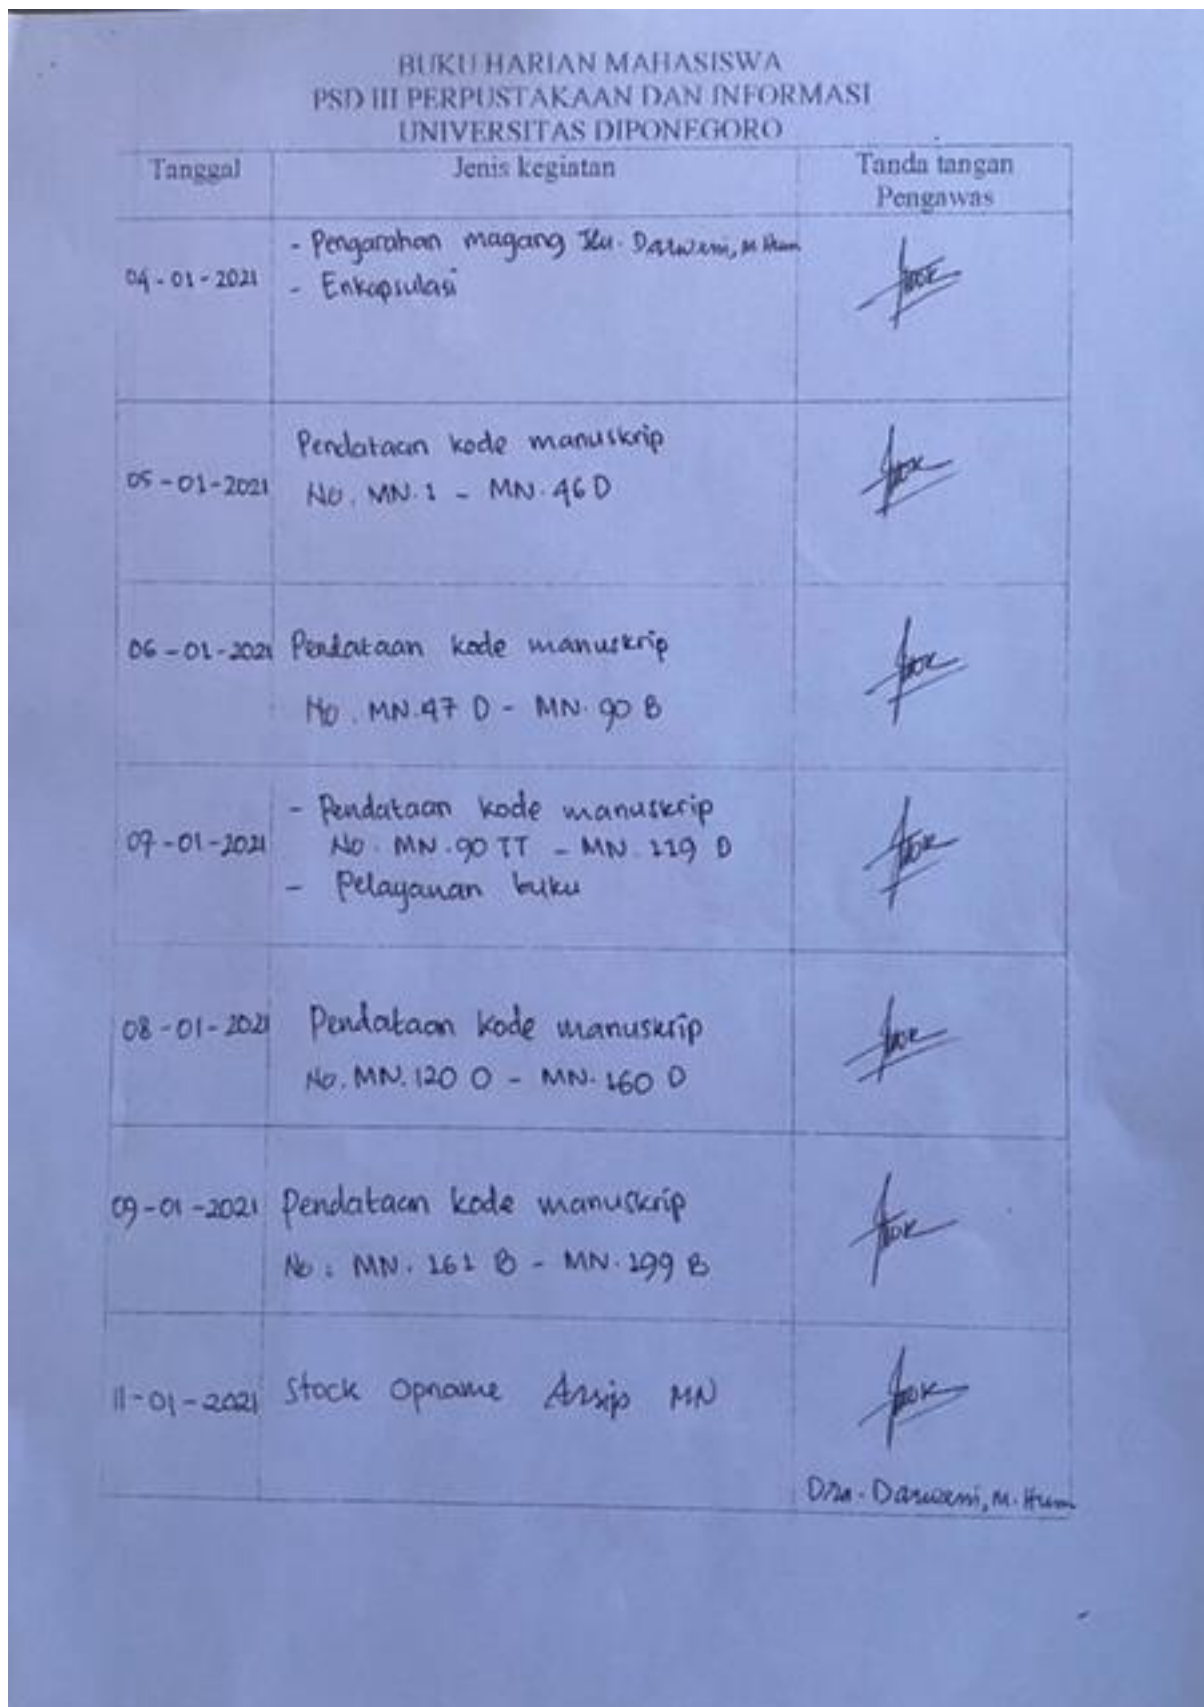 BUKU HARIAN MAHASISWA
PSD III PERPUSTAKAAN DAN INFORMASI
UNIVERSITAS DIPONEGORO
Tanggal Jenis kegiatan Tanda tangan
Pengawas
04-01-2021
- Pengarahan magang Darweni, M.Hum
- Enkapsulasi
05-01-2021
Pendataan kode manuskrip
No. MN.1 - MN.46 D
06-01-2021 Pendataan kode manuskrip
No. MN.47 D - MN.90 B
07-01-2021
- Pendataan kode manuskrip
No. MN.90 TT - MN.119 D
- Pelayanan buku
08-01-2021 Pendataan kode manuskrip
No. MN.120 O - MN.160 D
09-01-2021 Pendataan kode manuskrip
No : MN. 161 B - MN.199 B
11-01-2021 Stock Opname Arsip MN
Dra. Darweni, M.Hum